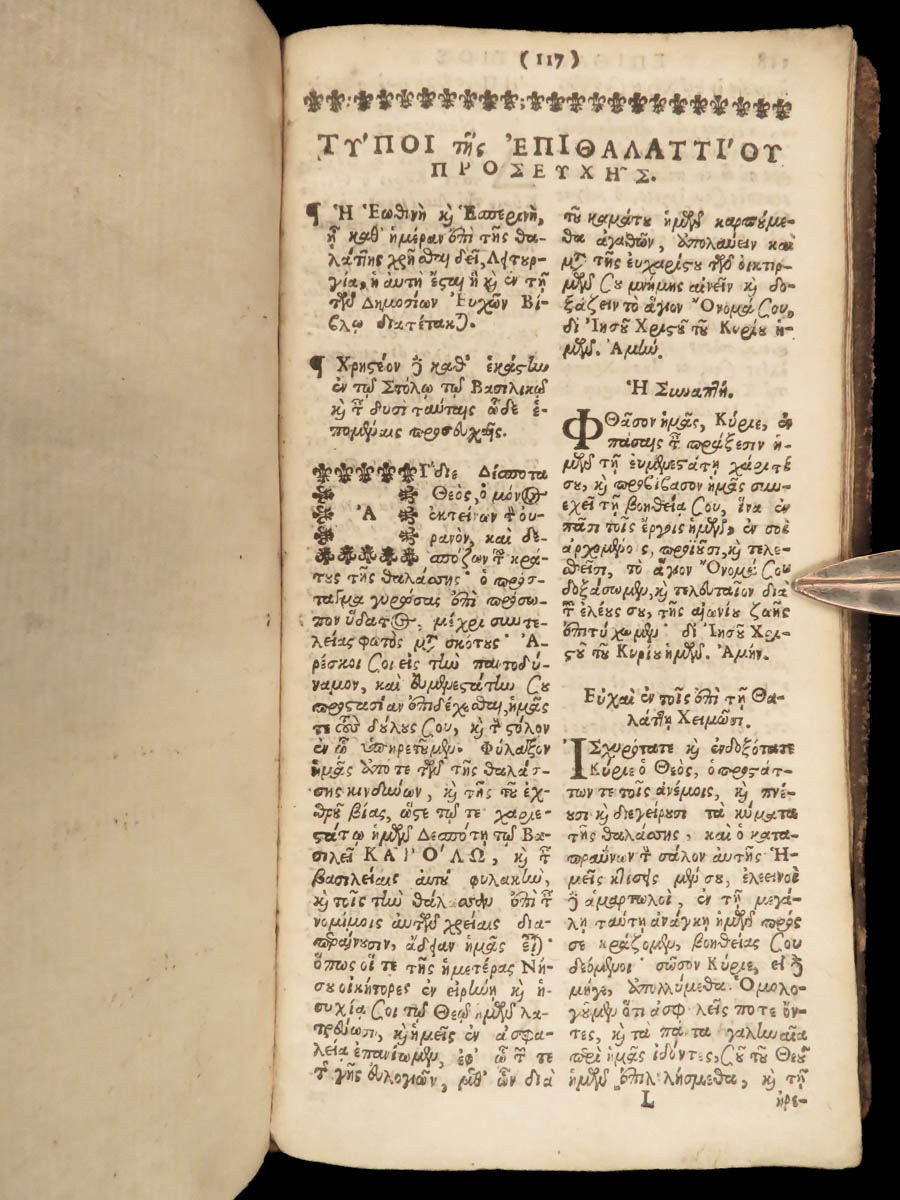 ( 117 )
ΤΎΠΟΙ τῆς ἘΠΙΘΑΛΑΤΤΊΟΥ
ΠΡΟΣΕΥΧΗ͂Σ.
¶ Ἡ Ἑωθινὴ κỳ Ἑσπερινὴ,
ᾗ καθ' ἡμέραν ἐπὶ τῆς θα-
λάττης χρῆσθαι δεῖ, Λειτουρ-
γία, ἡ αὐτὴ ἔσται ᾗ κỳ ἐν τῇ
τῶν Δημοσίων Εὐχῶν Βί-
βλῳ διατέτακται.
¶ Χρηστέον ἢ καθ' ἑκάστην
ἐν τῷ Στόλῳ τῷ Βασιλικῷ
κỳ τ δυσὶ ταύταις ὧδε ἑ-
πομέναις προσευχαῖς.
Ἀΐδιε Δέσποτα
Θεὸς, ὁ μόνος
ἐκτείνων τ οὐ-
ρανὸν, καὶ δε-
σπόζων τ κρά-
τους τῆς θαλάσσης· ὁ πρόσ-
ταγμα γυρώσας ἐπὶ πρόσω-
πον ὕδατος, μέχρι συντε-
λείας φωτὸς μετὰ σκότους· Ἀ-
ρέσκοι σοι εἰς τὴν παντοδύ-
ναμον, καὶ εὐμενεστάτην σου
προστασίαν ἐπιδέχεσθαι, ἡμᾶς
τε τοὺς δούλους σου, κỳ τ στόλον
ἐν ᾧ ὑπηρετοῦμεν. Φύλαξον
ἡμᾶς ἀπό τε τῶν τῆς θαλάσ-
σης κινδύνων, κỳ τῆς τοῦ ἐχ-
θροῦ βίας, ὥστε τῷ τε χαριε-
στάτῳ ἡμῶν Δεσπότῃ τῷ Βα-
σιλεῖ ΚΑΡΌΛΩ, κỳ τ
βασιλείαις αὐτοῦ φυλακὴν,
κỳ τοῖς τὴν θάλασσαν ἐπὶ τ
νομίμοις αὐτῶν χρείαις δια-
περῶσιν, ἄδειαν ἡμᾶς εἶναι·
ὅπως οἵ τε τῆς ἡμετέρας Νή-
σου οἰκήτορες ἐν εἰρήνῃ κỳ ἡ-
συχίᾳ σοι τῷ Θεῷ ἡμῶν λα-
τρεύωσι, κỳ ἡμεῖς ἐν ἀσφα-
λείᾳ ἐπανίωμεν, ἐφ' ᾧ τ τε
τ γῆς εὐλογιῶν, μεθ' ὧν διὰ
τοῦ καμάτου ἡμῶν καρπούμε-
θα ἀγαθῶν, ἀπολαύειν καὶ
μετὰ τῆς εὐχαρίστου τῶν οἰκτιρ-
μῶν σου μνήμης αἰνεῖν κỳ δο-
ξάζειν τὸ ἅγιον Ὄνομά σου,
δι' Ἰησοῦ Χριστοῦ τοῦ Κυρίου ἡ-
μῶν. Ἀμήν.
Ἡ Συναπτή.
ΦΘᾶσον ἡμᾶς, Κύριε, ἐν
πάσαις τ πράξεσιν ἡ-
μῶν τῇ εὐμενεστάτῃ χάριτί
σου, κỳ προβίβασον ἡμᾶς συν-
εχεῖ τῇ βοηθείᾳ σου, ἵνα ἐν
πᾶσι τοῖς ἔργοις ἡμῶν, ἐν σοὶ
ἀρχομένοις, προϊοῦσι, κỳ τελε-
σθεῖσι, τὸ ἅγιον Ὄνομά σου
δοξάσωμεν, κỳ τελευταῖον διὰ
τ ἐλέους σου, τῆς αἰωνίου ζωῆς
ἐπιτύχωμεν· δι' Ἰησοῦ Χρι-
στοῦ τοῦ Κυρίου ἡμῶν. Ἀμήν.
Εὐχαὶ ἐν τοῖς ἐπὶ τῇ Θα-
λάττῃ Χειμῶσι.
ἸΣχυρότατε κỳ ἐνδοξότατε
Κύριε ὁ Θεὸς, ὁ προστάτ-
των τε τοῖς ἀνέμοις, κỳ πνέ-
ουσι κỳ διεγείρουσι τὰ κύματα
τῆς θαλάσσης, καὶ ὁ κατα-
πραΰνων τ σάλον αὐτῆς· Ἡ-
μεῖς κτίσεις μέν σου, ἐλεεινοὶ
ἢ ἁμαρτωλοὶ, ἐν τῇ μεγά-
λῃ ταύτῃ ἀνάγκῃ ἡμῶν πρός
σε κράζομεν, βοηθείας σου
δεόμενοι· σῶσον Κύριε, εἰ ἢ
μήγε, ἀπολλύμεθα. Ὁμολο-
γοῦμεν ὅτι ἀσφαλεῖς ποτε ὄν-
τες, κỳ τὰ πάντα γαληναῖα
περὶ ἡμᾶς ἰδόντες, σοῦ τοῦ Θεοῦ
ἡμῶν ἐπιλελήσμεθα, κỳ τῇ
L
ἠρε-